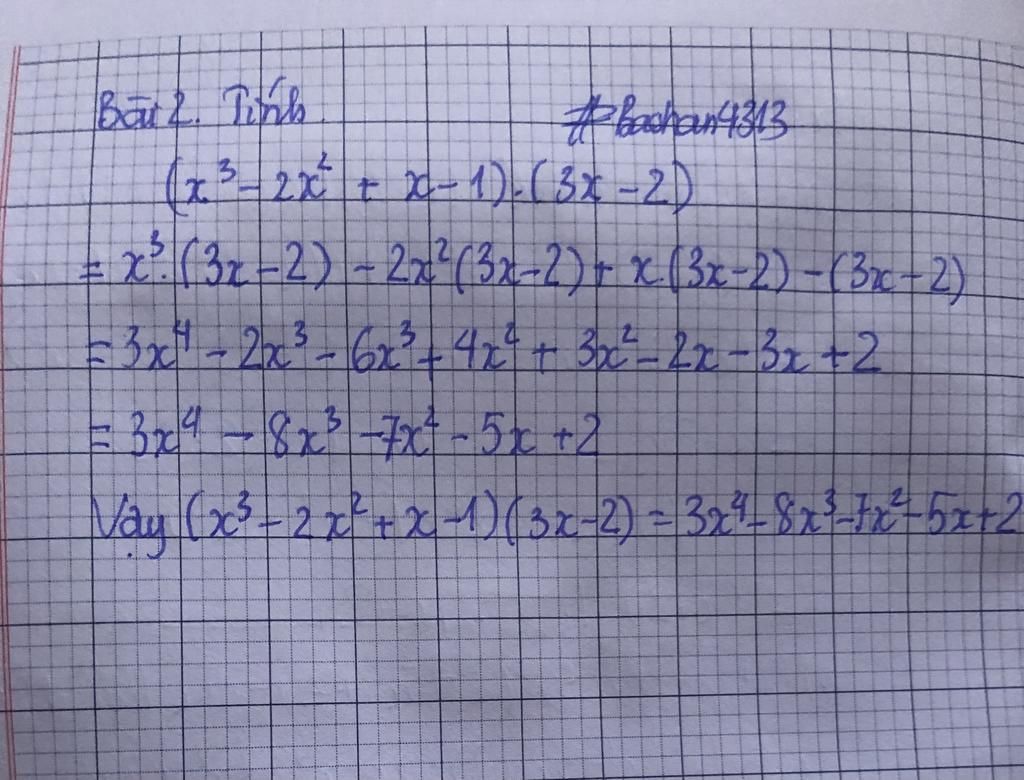 Bài 2. Tính #Baohan4313
(x³ - 2x² + x - 1).(3x - 2)
= x³.(3x - 2) - 2x²(3x - 2) + x.(3x - 2) - (3x - 2)
= 3x⁴ - 2x³ - 6x³ + 4x² + 3x² - 2x - 3x + 2
= 3x⁴ - 8x³ - 7x² - 5x + 2
Vậy (x³ - 2x² + x - 1)(3x - 2) = 3x⁴ - 8x³ - 7x² - 5x + 2